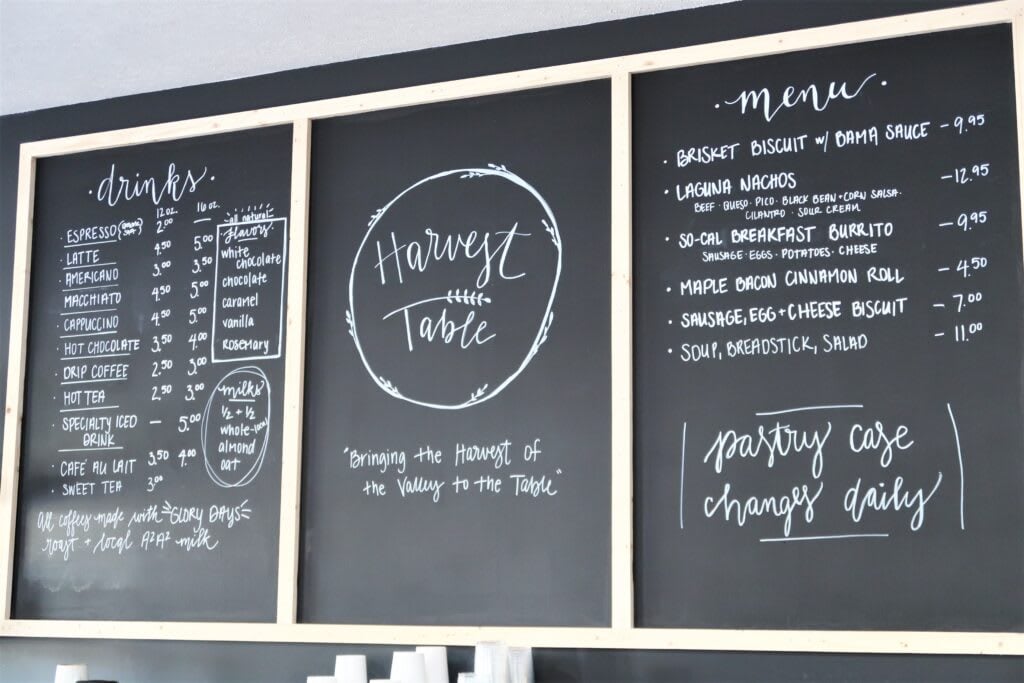 ·drinks·
12oz. 16oz.
· ESPRESSO 2.00 —
· LATTE 4.50 5.00
· AMERICANO 3.00 3.50
· MACCHIATO 4.50 5.00
· CAPPUCCINO 4.50 5.00
· HOT CHOCOLATE 3.50 4.00
· DRIP COFFEE 2.50 3.00
· HOT TEA 2.50 3.00
· SPECIALTY ICED — 5.00
DRINK
· CAFÉ AU LAIT 3.50 4.00
· SWEET TEA 3.00
all natural
flavors
white
chocolate
chocolate
caramel
vanilla
rosemary
milks
½ + ½
whole-local
almond
oat
All coffees made with GLORY DAYS
roast + local A²A² milk
Harvest
Table
"Bringing the Harvest of
the Valley to the Table"
·menu·
· BRISKET BISCUIT w/ BAMA SAUCE - 9.95
· LAGUNA NACHOS - 12.95
BEEF · QUESO · PICO · BLACK BEAN + CORN SALSA ·
CILANTRO · SOUR CREAM
· SO-CAL BREAKFAST BURRITO - 9.95
SAUSAGE · EGGS · POTATOES · CHEESE
· MAPLE BACON CINNAMON ROLL - 4.50
· SAUSAGE, EGG + CHEESE BISCUIT - 7.00
· SOUP, BREADSTICK, SALAD - 11.00
pastry case
changes daily